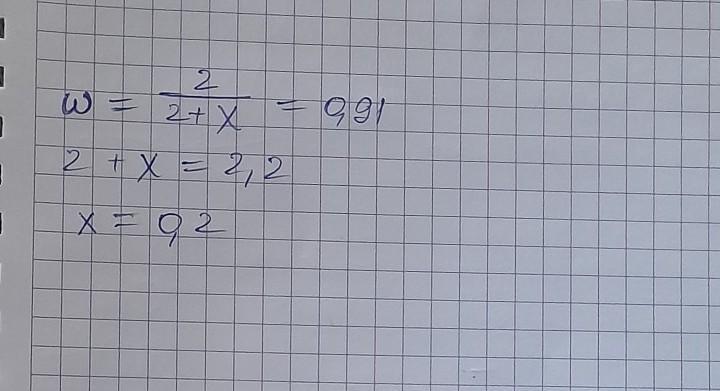 ω = 2/(2+x) = 0,91
2 + x = 2,2
x = 0,2